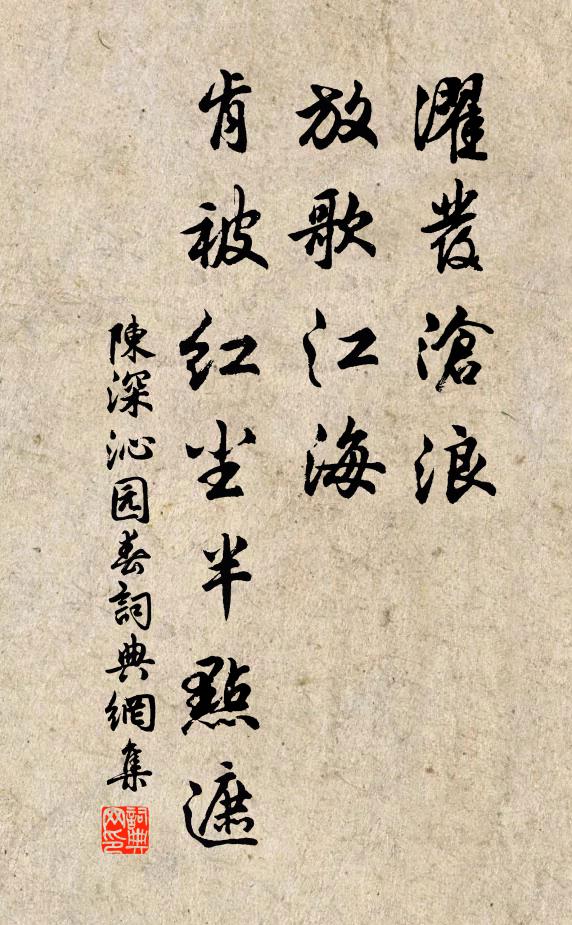 濯發滄浪
放歌江海
肯被红尘半點遮
陳深沁园春詞典網集
詞典网印